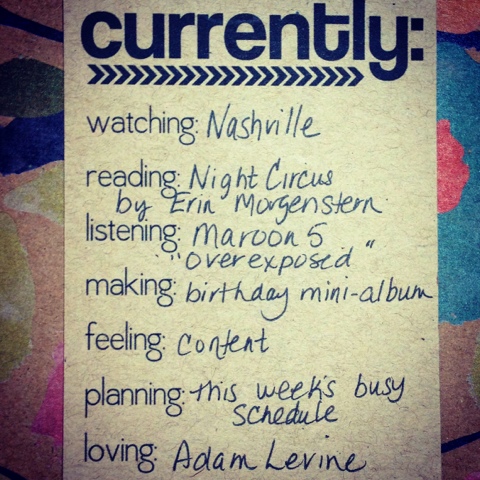 currently:
watching: Nashville
reading: Night Circus
by Erin Morgenstern
listening: Maroon 5
"overexposed"
making: birthday mini-album
feeling: content
planning: this week's busy
schedule
loving: Adam Levine